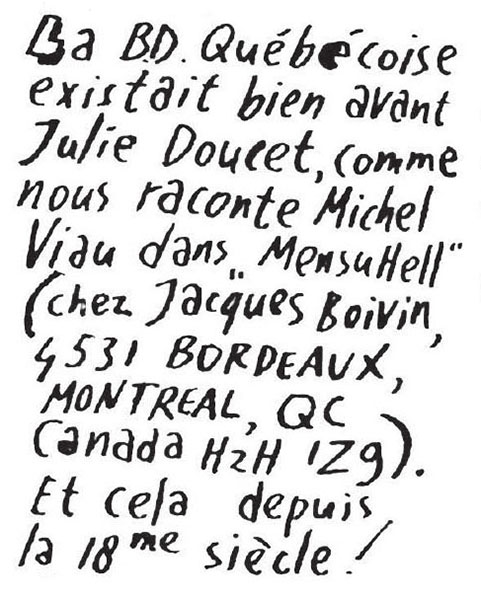 La B.D. Québécoise
existait bien avant
Julie Doucet, comme
nous raconte Michel
Viau dans „MensuHell“
(chez Jacques Boivin,
4531 BORDEAUX,
MONTREAL, QC
Canada H2H 1Z9).
Et cela depuis
la 18me siècle!